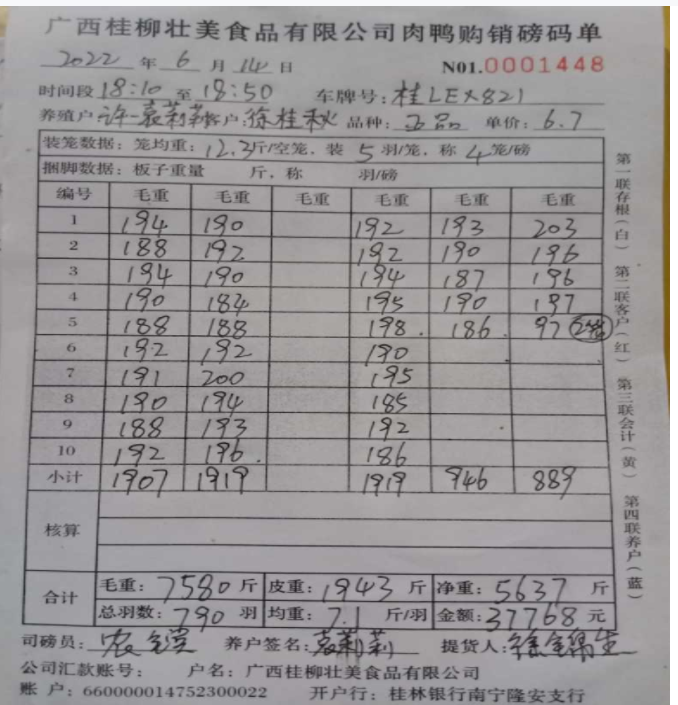 广西桂柳壮美食品有限公司肉鸭购销磅码单
2022 年 6 月 14 日 N01.0001448
时间段 18:10 至 18:50 车牌号：桂LEX821
养殖户：许 袁莉莉 客户：徐桂秋 品种：正品 单价：6.7
装笼数据：笼均重：12.3斤/空笼．装 5 羽/笼．称 4 笼/磅
捆脚数据：板子重量 斤，称 羽/磅
编号 毛重 毛重 毛重 毛重 毛重 毛重
1 194 190 192 193 203
2 188 192 192 190 196
3 194 190 194 187 196
4 190 184 195 190 197
5 188 188 198 186 97
6 192 192 190
7 191 200 195
8 190 194 185
9 188 193 192
10 192 196 186
小计 1907 1919 1919 946 889
核算
合计 毛重：7580 斤 皮重：1943 斤 净重：5637 斤
总羽数：790 羽 均重：7.1 斤/羽 金额：37768 元
司磅员： 养户签名：袁莉莉 提货人：
公司汇款账号： 户名：广西桂柳壮美食品有限公司
账 户：660000014752300022 开户行：桂林银行南宁隆安支行
第一联存根（白） 第二联客户（红） 第三联会计（黄） 第四联养户（蓝）